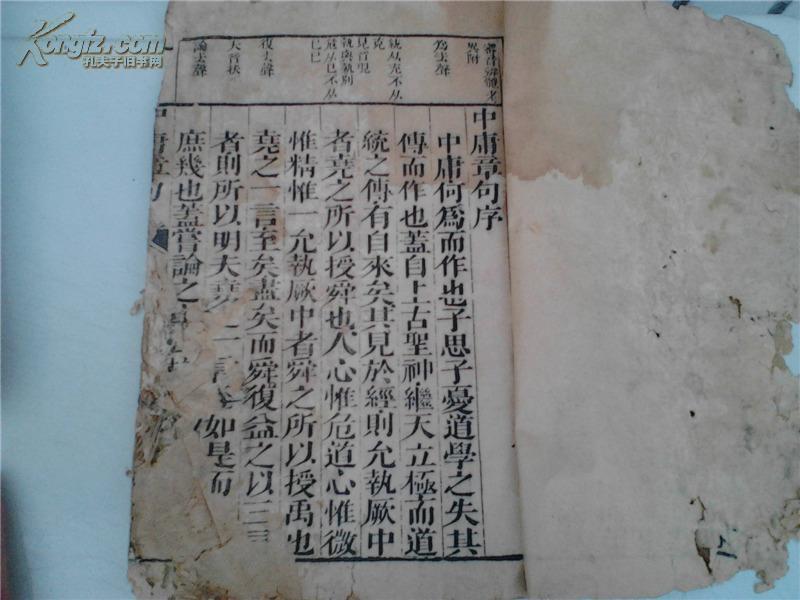 Kongfz.com
孔夫子旧书网
中庸章句序
中庸何爲而作也子思子憂道學之失其
傳而作也蓋自上古聖神繼天立極而道
統之傳有自來矣其見於經則允執厥中
者堯之所以授舜也人心惟危道心惟微
惟精惟一允執厥中者舜之所以授禹也
堯之一言至矣盡矣而舜復益之以三言
者則所以明夫堯之一言
如是而
庶幾也蓋嘗論之
中庸章句
爲去聲
執从丮不从
見音現
執與執別
危从㔾不从
巳已
復去聲
夫音扶
論去聲